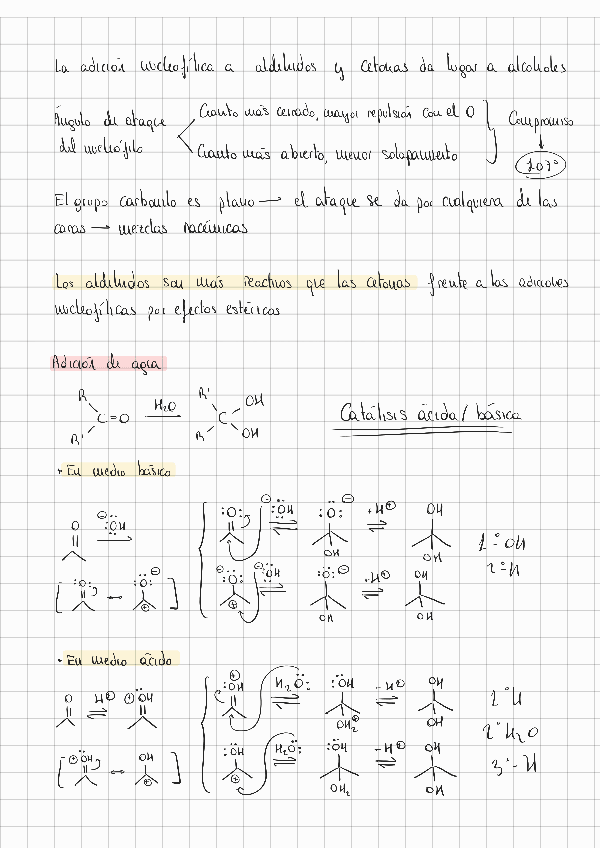 La adición nucleofílica a aldehidos y cetonas da lugar a alcoholes
Ángulo de ataque
del nucleófilo
Cuanto más cerrado, mayor repulsión con el O
Cuanto más abierto, menor solapamiento
Compromiso
107°
El grupo carbonilo es plano → el ataque se da por cualquiera de las
caras → mezclas racémicas
Los aldehidos son más reactivos que las cetonas frente a las adiciones
nucleofílicas por efectos estéricos
Adición de agua
R
R'
C=O
H₂O
R'
R
C
OH
OH
Catálisis ácida/básica
• En medio básico
O
⊖:ÖH
[ :O: ↔ :Ö:⊖ ⊕ ]
:O: ⊖:ÖH ⇌ :Ö:⊖ OH +H⊕ ⇌ OH OH
:Ö:⊖ ⊕ ⊖:ÖH ⇌ :Ö:⊖ OH +H⊕ ⇌ OH OH
1º- OH
2º- H
• En medio ácido
O H⊕ ⇌ ⊕:ÖH
[ ⊕:ÖH ↔ OH ⊕ ]
⊕:ÖH H₂Ö: ⇌ :ÖH OH₂⊕ -H⊕ ⇌ OH OH
:ÖH ⊕ H₂Ö: ⇌ :ÖH OH₂ -H⊕ ⇌ OH OH
1º H
2º H₂O
3º- H